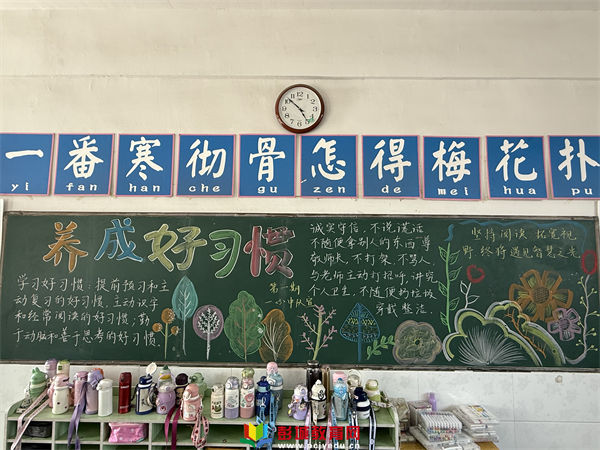 一番寒彻骨怎得梅花扑
yi fan han che gu zen de mei hua pu
养成好习惯
学习好习惯：提前预习和主
动复习的好习惯，主动识字
和经常阅读的好习惯，勤
于动脑和善于思考的好习惯。
第一期
诚实守信，不说谎话
不随便拿别人的东西 尊
敬师长，不打架，不骂人，
与老师主动打招呼，讲究
个人卫生，不随便扔垃圾
穿戴整洁
坚持阅读 拓宽视
野 终将遇见智慧之光
彭城教育网
www.pcjyedu.cn